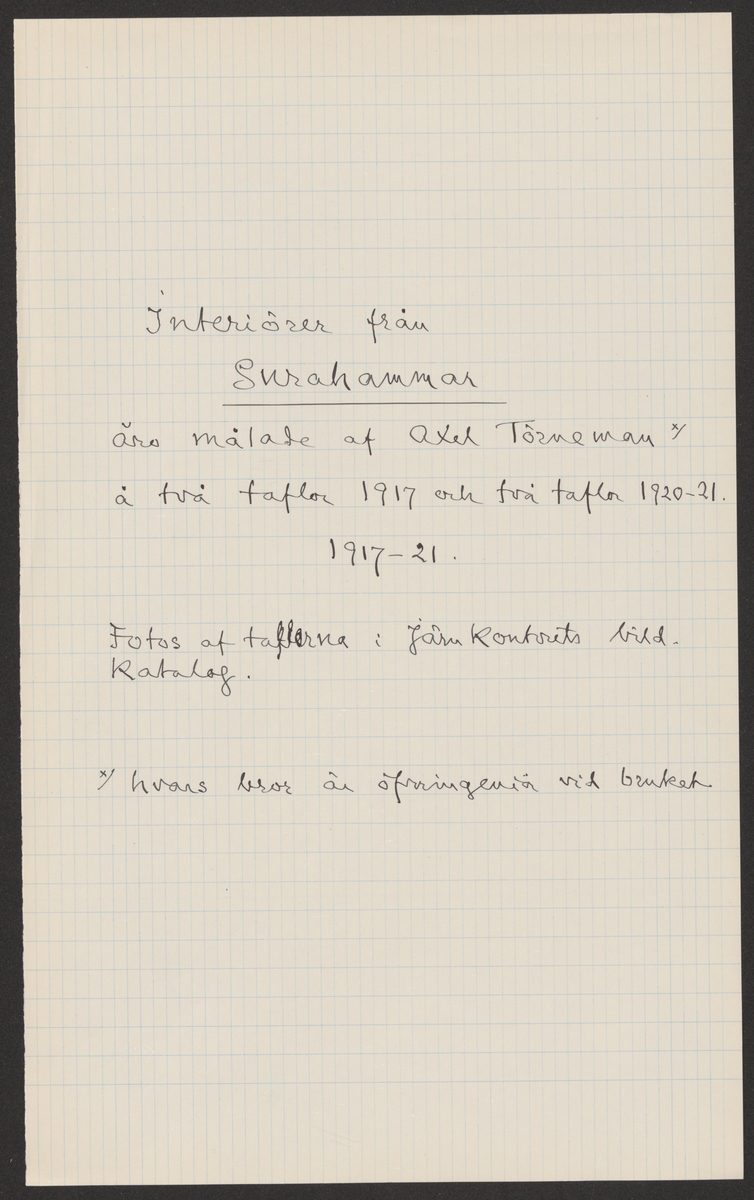 Interiörer från
Surahammar
äro målade af Axel Törneman x/
å två taflor 1917 och två taflor 1920-21.
1917-21.
Fotos af taflerna i Järnkontorets bild-
katalog.
x/ hvars bror är öfveringeniör vid bruket.